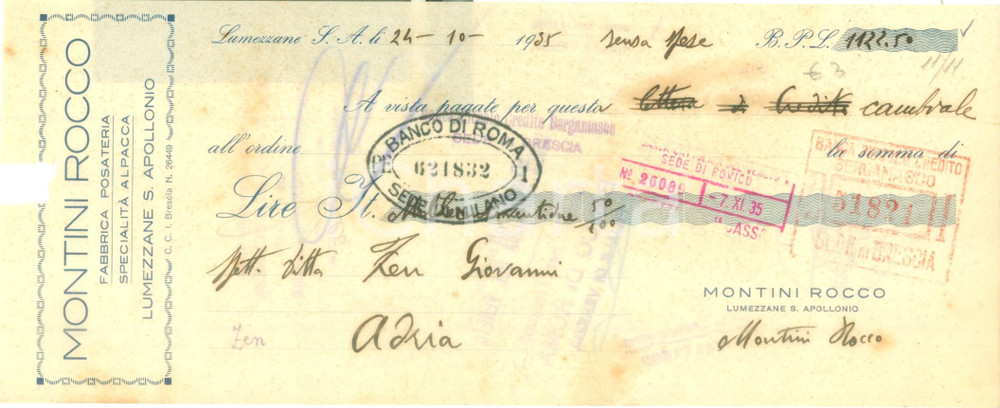 MONTINI ROCCO
FABBRICA POSATERIA
SPECIALITÀ ALPACCA
LUMEZZANE S. APOLLONIO
C. C. I. Brescia N. 26449
Lumezzane S. A. li 24-10-1935 senza spese B. P. L. 1122.50
€ 3
11/11
A vista pagate per questa lettera di Credito cambiale
Credito Bergamasco
SEDE BRESCIA
all'ordine la somma di
BANCO DI ROMA
621832
1
SEDE MILANO
SEDE DI ROVIGO
No 26089
-7.XI.35
BANCA CREDITO
BERGAMASCO
51821
SEDE DI BRESCIA
Lire It. 50/100
spett. Ditta Zen Giovanni
MONTINI ROCCO
LUMEZZANE S. APOLLONIO
Zen
Adria
Montini Rocco